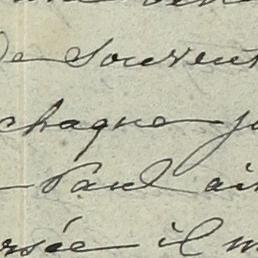 de souven
chaque jo
Paul ai
rsée il m